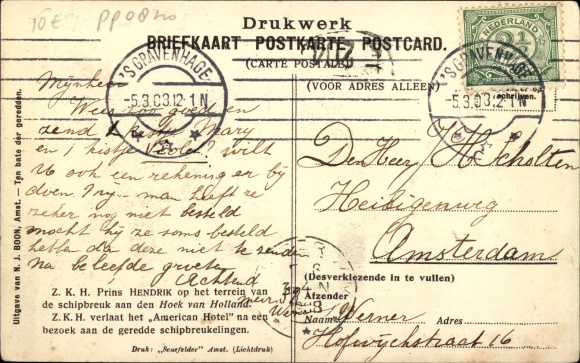 10 E
Drukwerk
BRIEFKAART POSTKARTE POSTCARD.
(CARTE POSTALE)
(VOOR ADRES ALLEEN)
NEDERLAND
2½
'S GRAVENHAGE
5.3.08.12-1N
'S GRAVENHAGE
5.3.08.12-1N
Mijnheer
Wees zoo goed en
zend 1 kistje Mary
en 1 kistje wilt
U ook een rekening er bij
doen. Mijn man heeft ze
zeker nog niet besteld
mocht hij ze soms besteld
hebben dan deze niet te zenden
Na beleefde groeten
Achtend
Den Heer H. Scholten
Heiligenweg
Amsterdam
(Desverkiezende in te vullen)
Afzender
Naam: Werner Adres
Hofwijckstraat 16
Z. K. H. Prins HENDRIK op het terrein van
de schipbreuk aan den Hoek van Holland.
Z. K. H. verlaat het „American Hotel" na een
bezoek aan de geredde schipbreukelingen.
Druk: „Senefelder" Amst. (Lichtdruk)
Uitgave van N. J. BOON, Amst. — Ten bate der geredden.